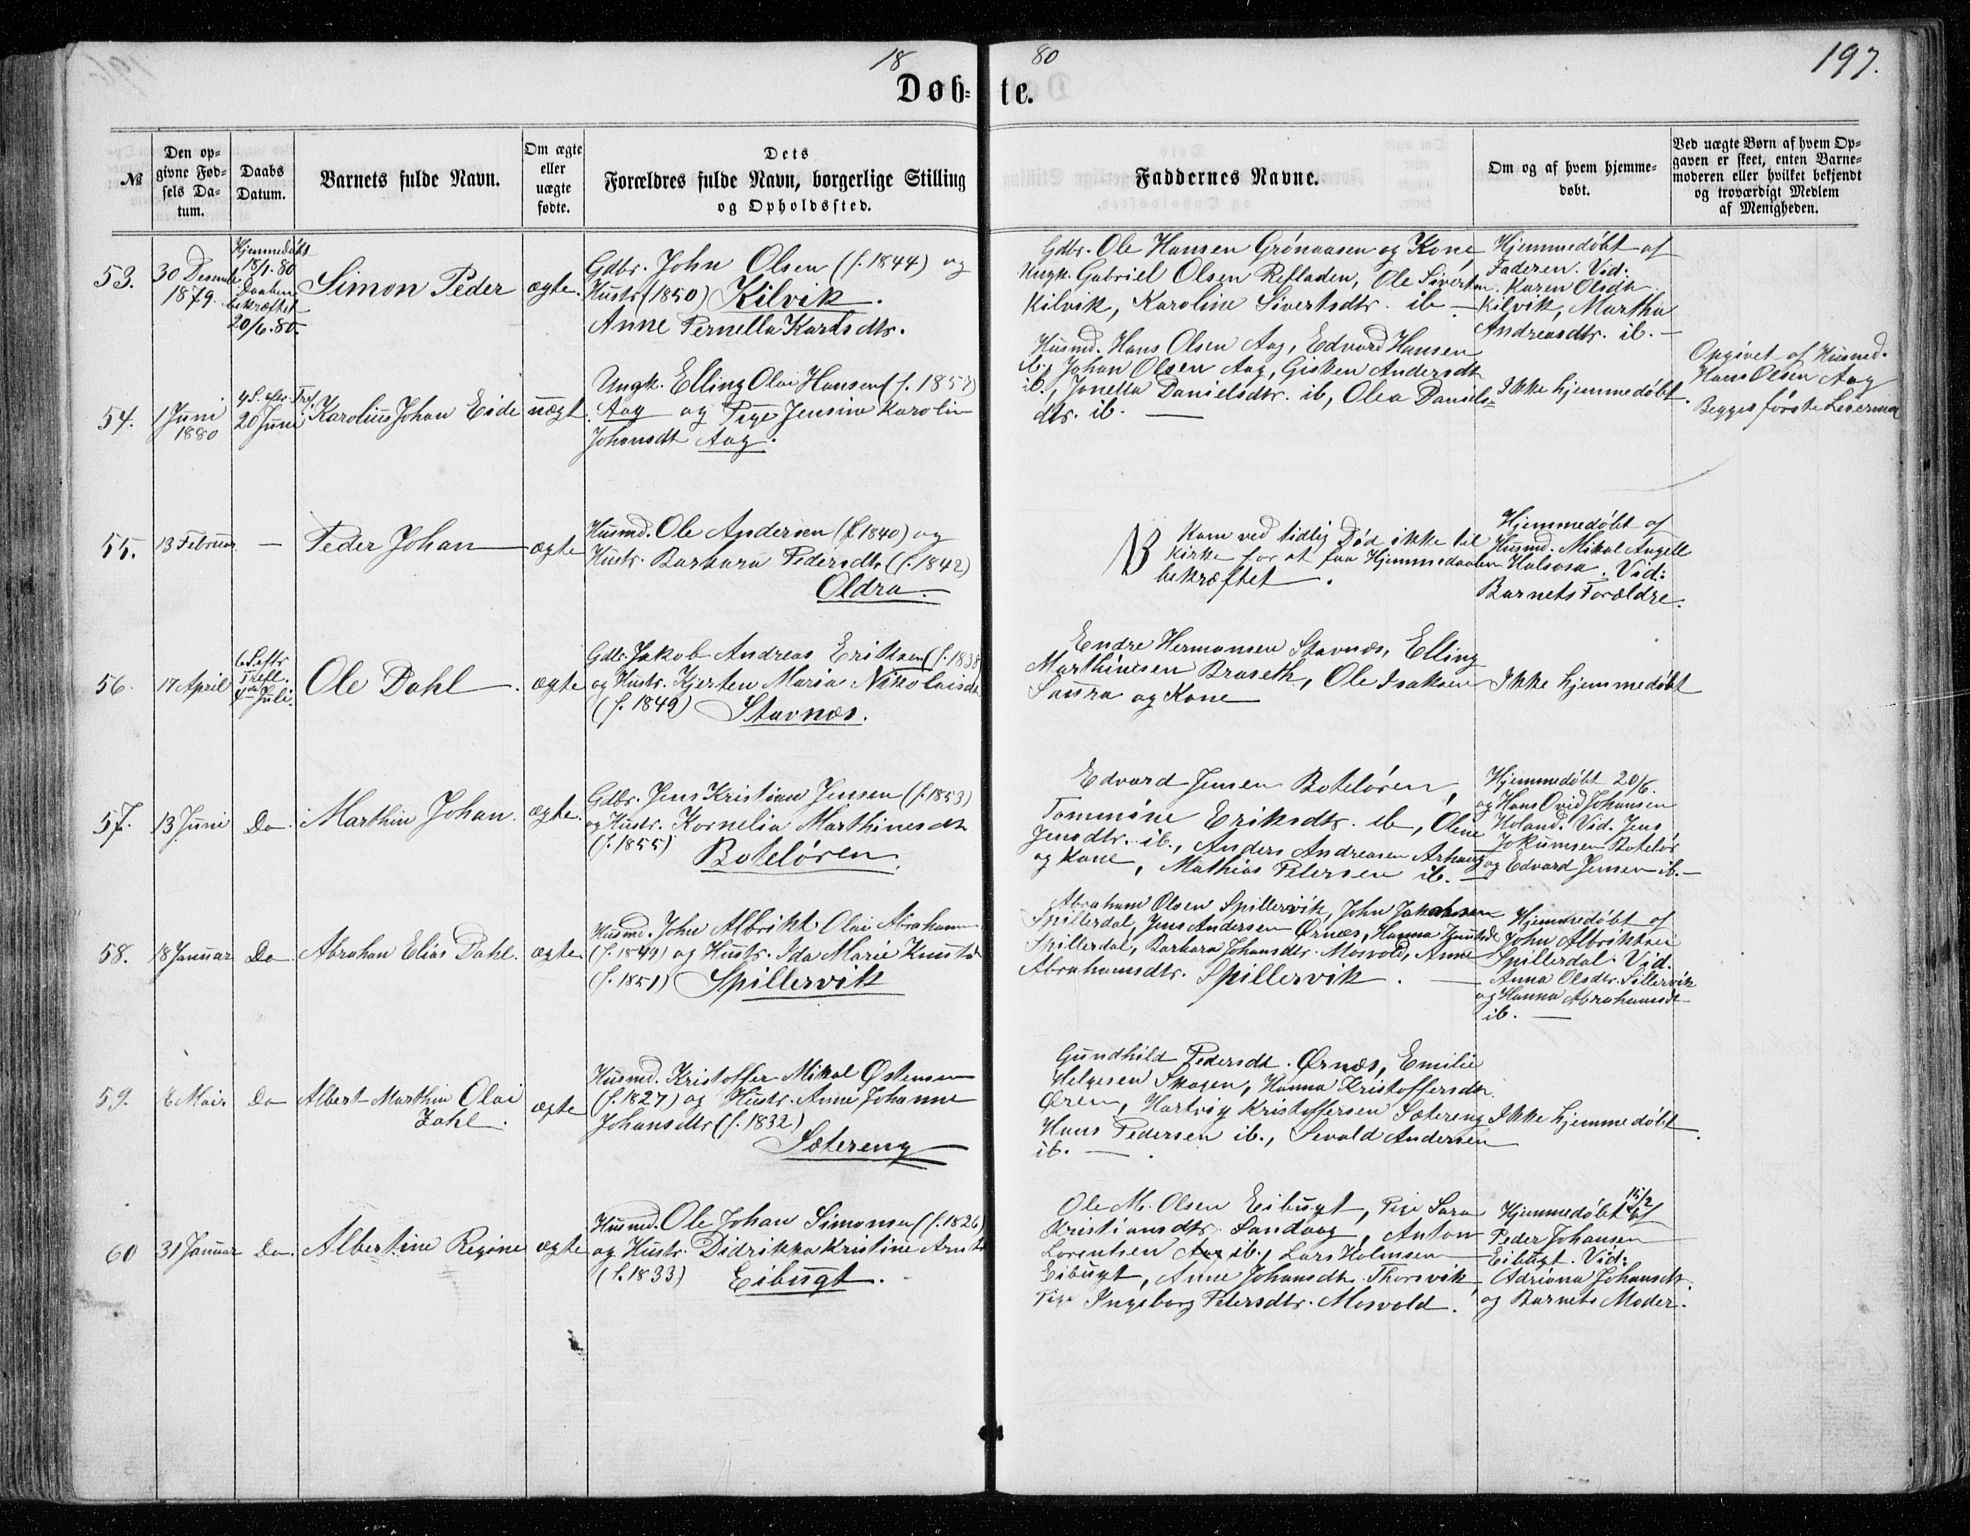 18 80
197.
Døb= te.
№
Den op-
givne Fød-
sels Da-
tum.
Daabs
Datum.
Barnets fulde Navn.
Om ægte
eller
uægte
fødte.
Dets
Forældres fulde Navn, borgerlige Stilling
og Opholdssted.
Faddernes Navne.
Om og af hvem hjemme-
døbt.
Ved uægte Børn af hvem Op-
gaven er skeet, enten Barne-
moderen eller hvilket bekjendt
og troværdigt Medlem
af Menigheden.
53.
30 Desember
1879.
Hjemmedøbt
18/1.80
Daaben
bekræftet
20/6.80.
Simon Peder
ægte.
Gdbr. John Olsen (f. 1844) og
Hustr (1850) Kilvik.
Anne Pernella Karlsdtr.
Gdbr. Ole Hansen Grønaasen og Kone,
Ungk. Gabriel Olsen Refladen, Ole Sivertsen
Kilvik, Karoline Sivertsdtr. ib.
Hjemmedøbt af
Faderen. Vid.
Karen Olsdtr
Kilvik, Martha
Andreasdtr. ib.
54.
1 Juni
1880
4 S. efter Tref.
20 Juni
Karolius Johan Eide
uægt.
Ungk. Elling Olai Hansen (f. 1857)
Aag og Pige Jensine Karolin
Johansdt Aag.
Husmd. Hans Olsen Aag, Edvard Hansen
ib., Johan Olsen Aag, Gisken Andersdt
ib., Jonetta Danielsdtr. ib, Olea Daniels=
dtr. ib.
Ikke hjemmedøbt.
Opgivet af Husmd.
Hans Olsen Aag
Begges første Leiermaal
55.
13 Februar
—
Peder Johan
ægte
Husmd. Ole Andersen (f. 1840) og
Hustr. Barbara Pedersdtr (f. 1842)
Oldra.
NB Kom ved tidlig Død ikke til
Kirke for at faa Hjemmedaaben
bekræftet.
Hjemmedøbt af
Husmd. Mikal Angell
Halsosa. Vid:
Barnets Forældre.
56.
17 April
6 S. eftr
Trefl.
4 Juli
Ole Dahl
ægte
Gdbr. Jakob Andreas Eriksen (f. 1838
og Hustr. Hjerten Maria Nikolaisdt
(f. 1849) Stavnæs.
Endre Hermansen Stavnæs, Elling
Marthinesen Braseth, Ole Isaksen
Saura og Kone
Ikke hjemmedøbt
57.
13 Juni
Do
Marthin Johan.
ægte.
Gdbr. Jens Kristian Jensen (f. 1853)
og Hustr. Kornelia Marthinesdt
(f. 1855) Boteløren.
Edvard Jensen Boteløren,
Tommine Eriksdtr. ib, Oline
Jensdtr. ib., Anders Andreasen Arhaug
og Kone, Mathias Petersen ib.
Hjemmedøbt 20/6.
og Hans Ovid Johansen
Holand. Vid. Jens
Jokumsen Boteløs
og Edvard Jensen ib.
58.
18 Januar
Do
Abrahan Elias Dahl.
ægte
Husmd. John Albrikt Olai Abraham
(f. 1849) og Hustr. Ida Marie Knutsd
(f. 1851) Spillervik
Abraham Olsen Spillervik, John Jakobsen
Spillerdal, Jens Andersen Ørnæs, Hanna Knutsd
Spillerdal, Barbara Johansdtr. Mosvold, Anne
Abrahamsdtr. Spillervik.
Hjemmedøbt af
John Albriktsen
Spillerdal. Vid.
Anna Olsdtr. Sillervik
og Hanna Abrahamsdt
ib.
59.
8 Mai
Do
Albert Marthin Olai
Zahl.
ægte
Husmd. Kristoffer Mikal Østensen
(f. 1827) og Hustr. Anne Johanne
Johansdtr (f. 1832)
Sætereng
Gundhild Pedersdt. Ørnæs, Emilie
Helgesen Skogen, Hanna Kristoffersdtr
Øren, Hartvig Kristoffersen Sætereng
Hans Pedersen ib., Sevald Andersen
ib.
Ikke hjemmedøbt.
60
31 Januar
Do
Albertine Regine
ægte
Husmd. Ole Johan Simonsen (f. 1826)
og Hustr. Didrikka Kristine Arnts
(f. 1833) Eibugt.
Ole M. Olsen Eibugt, Pige Sara
Kristiansdtr. Sandaag, Anton
Lorentsen ib., Lars Holmsen
Eibugt, Anne Johansdtr. Thorsvik,
Pige Ingeborg Petersdtr. Mosvold.
Hjemmedøbt 15/2 af
Peder Johansen
Eibugt. Vid:
Adriana Johansdt.
og Barnets Moder.